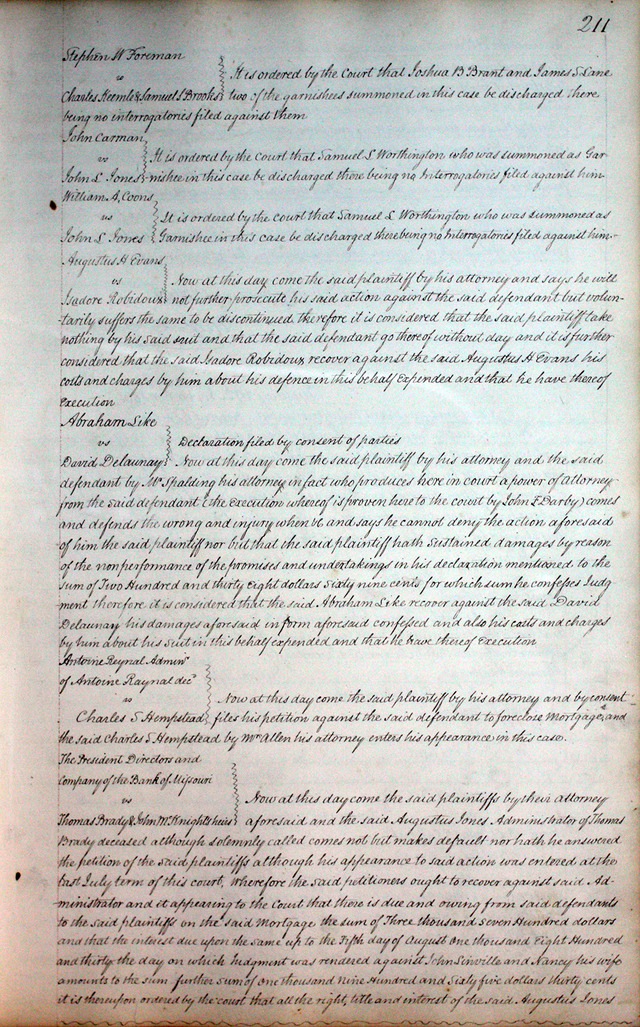 211
Stephen W Foreman
vs
It is ordered by the Court that Joshua B Brant and James S Lane
Charles Keemle & Samuel S Brooks two of the garnishees summoned in this case be discharged there
being no interrogatories filed against them
John Carman
vs
It is ordered by the Court that Samuel L Worthington who was summoned as Gar-
John L Jones nishee in this case be discharged there being no Interrogatories filed against him
William A, Coons
vs
It is ordered by the court that Samuel L Worthington who was summoned as
John L Jones Garnishee in this case be discharged there being no Interrogatories filed against him
Augustus H Evans
vs
Now at this day come the said plaintiff by his attorney and says he will
Isadore Robidoux not further prosecute his said action against the said defendant but volun-
tarily suffers the same to be discontinued therefore it is considered that the said plaintiff take
nothing by his said suit and that the said defendant go thereof without day and it is further
considered that the said Isadore Robidoux recover against the said Augustus H Evans his
costs and charges by him about his defence in this behalf expended and that he have thereof
execution
Abraham Like
vs
Declaration filed by consent of parties
David Delaunay Now at this day come the said plaintiff by his attorney and the said
defendant by Mr Spalding his attorney in fact who produces here in court a power of Attorney
from the said defendant (the Execution whereof is proven here to the court by John F Darby) comes
and defends the wrong and injury when &c and says he cannot deny the action aforesaid
of him the said plaintiff nor but that the said plaintiff hath sustained damages by reason
of the nonperformance of the promises and undertakings in his declaration mentioned to the
sum of Two Hundred and thirty Eight dollars Sixty nine cents for which sum he confesses Judg-
ment therefore it is considered that the said Abraham Like recover against the said David
Delaunay his damages aforesaid in form aforesaid confessed and also his costs and charges
by him about his Suit in this behalf expended and that he have thereof Execution
Antoine Reynal Adminr
of Antoine Raynal decd
vs
Now at this day come the said plaintiff by his attorney and by consent
Charles S Hempstead files his petition against the said defendant to foreclose Mortgage, and
the said Charles S Hempstead by Mr Allen his attorney enters his appearance in this case.
The President Directors and
Company of the Bank of Missouri
vs
Now at this day come the said plaintiffs by their attorney
Thomas Brady & John McKnights heirs aforesaid and the said Augustus Jones Administrator of Thomas
Brady deceased although solemnly called comes not but makes default nor hath he answered
the petition of the said plaintiffs although his appearance to said action was entered at the
last July term of this court, wherefore the said petitioners ought to recover against said Ad-
ministrator and it appearing to the Court that there is due and owing from said defendants
to the said plaintiffs on the said Mortgage the sum of Three thousand Seven Hundred dollars
and that the interest due upon the same up to the Fifth day of August one thousand Eight Hundred
and thirty the day on which Judgment was rendered against John Linville and Nancy his wife
amounts to the sum further sum of one thousand nine Hundred and Sixty five dollars thirty cents
it is thereupon ordered by the court that all the right, title and interest of the said Augustus Jones